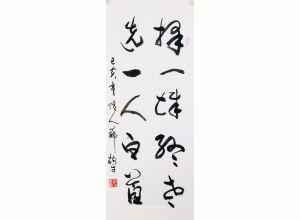 择一城终老
选一人白首
己亥年情人节